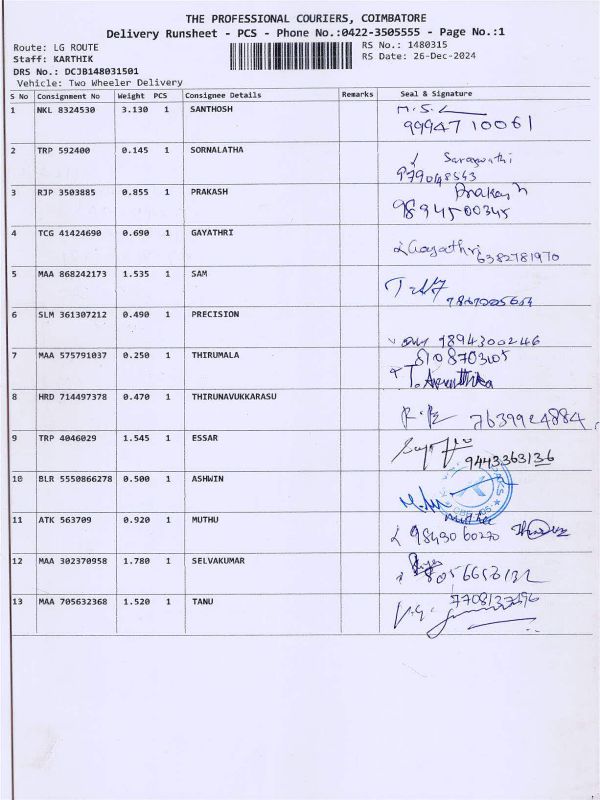 THE PROFESSIONAL COURIERS, COIMBATORE
Delivery Runsheet - PCS - Phone No.:0422-3505555 - Page No.:1
Route: LG ROUTE
RS No.: 1480315
Staff: KARTHIK
RS Date: 26-Dec-2024
DRS No.: DCJB148031501
Vehicle: Two Wheeler Delivery
S No Consignment No Weight PCS Consignee Details Remarks Seal & Signature
1 NKL 8324530 3.130 1 SANTHOSH
9994710061
2 TRP 592400 0.145 1 SORNALATHA
Saraswathi
3 RJP 3503885 0.855 1 PRAKASH
Prakash
9894500345
4 TCG 41424690 0.690 1 GAYATHRI
Gayathri 6382781970
5 MAA 868242173 1.535 1 SAM
6 SLM 361307212 0.490 1 PRECISION
9894300246
7 MAA 575791037 0.250 1 THIRUMALA
8108703105
8 HRD 714497378 0.470 1 THIRUNAVUKKARASU
7639924884
9 TRP 4046029 1.545 1 ESSAR
9443363136
10 BLR 5550866278 0.500 1 ASHWIN
11 ATK 563709 0.920 1 MUTHU
12 MAA 302370958 1.780 1 SELVAKUMAR
13 MAA 705632368 1.520 1 TANU
7708137196